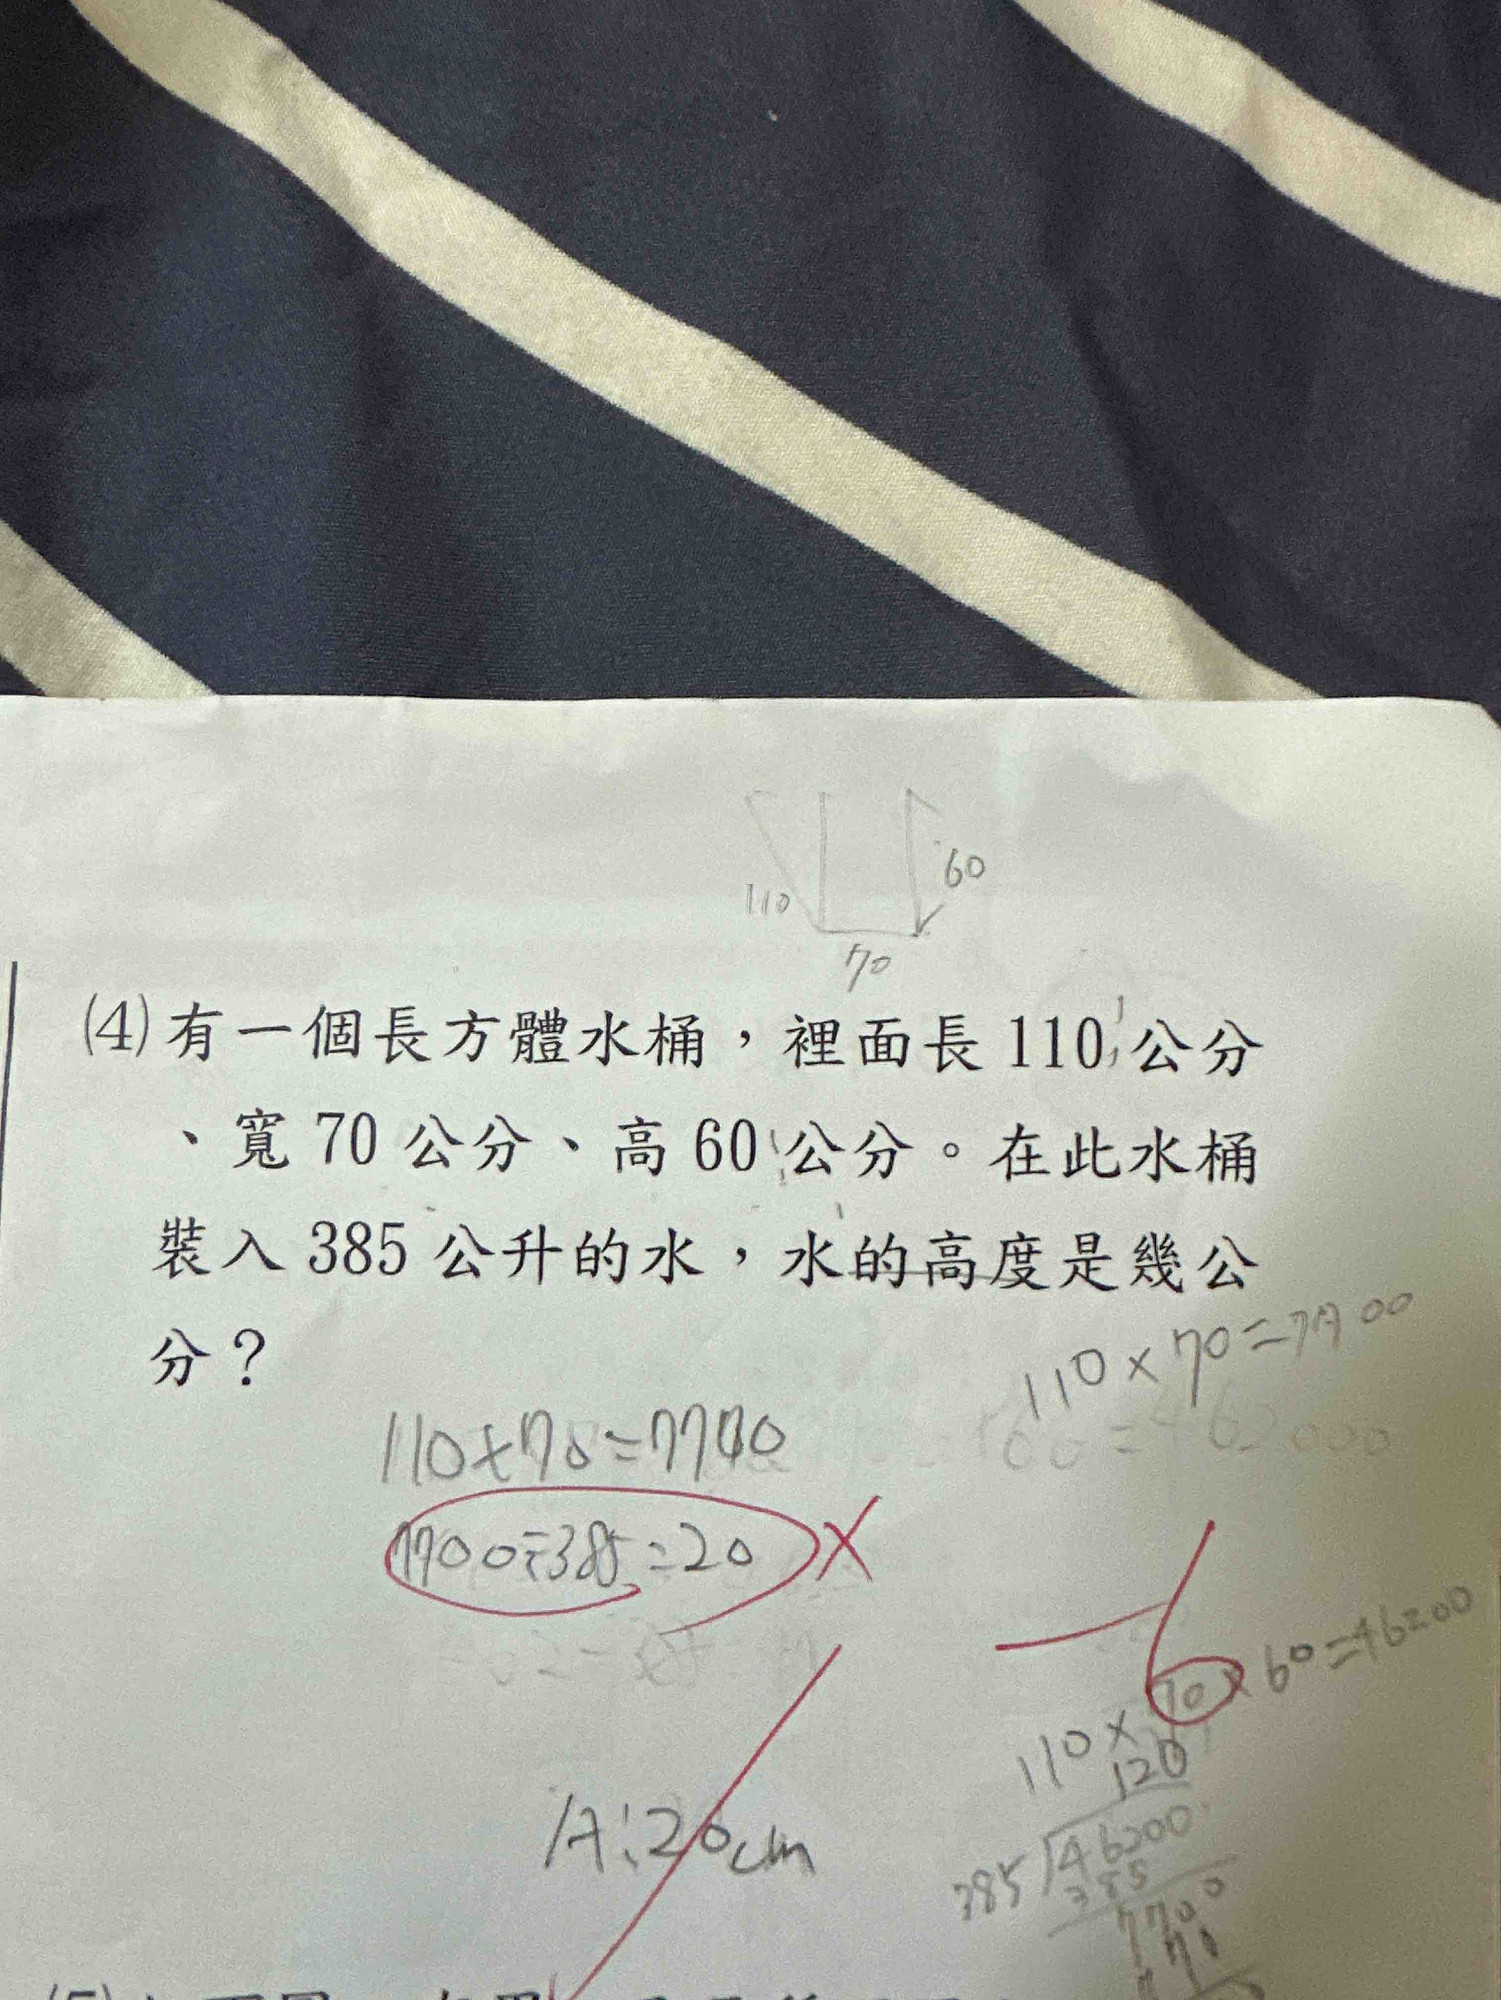 110
60
70
(4)有一個長方體水桶，裡面長110公分
、寬70公分、高60公分。在此水桶
裝入385公升的水，水的高度是幾公
分？
110×70=7700
110×70=7700
60=462000
7700÷385=20
110×70×60=46200
A:20cm
120
385 46200
385
7700